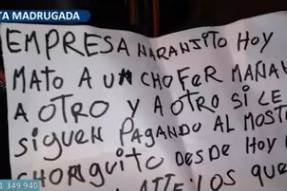 TA MADRUGADA
EMPRESA NARANJITO HOY
MATO A UN CHOFER MAÑAN
A OTRO Y A OTRO SI LE
SIGUEN PAGANDO AL MOST
CHORGUITO DESDE HOY
ATTE: LOS QUE
1 349 940